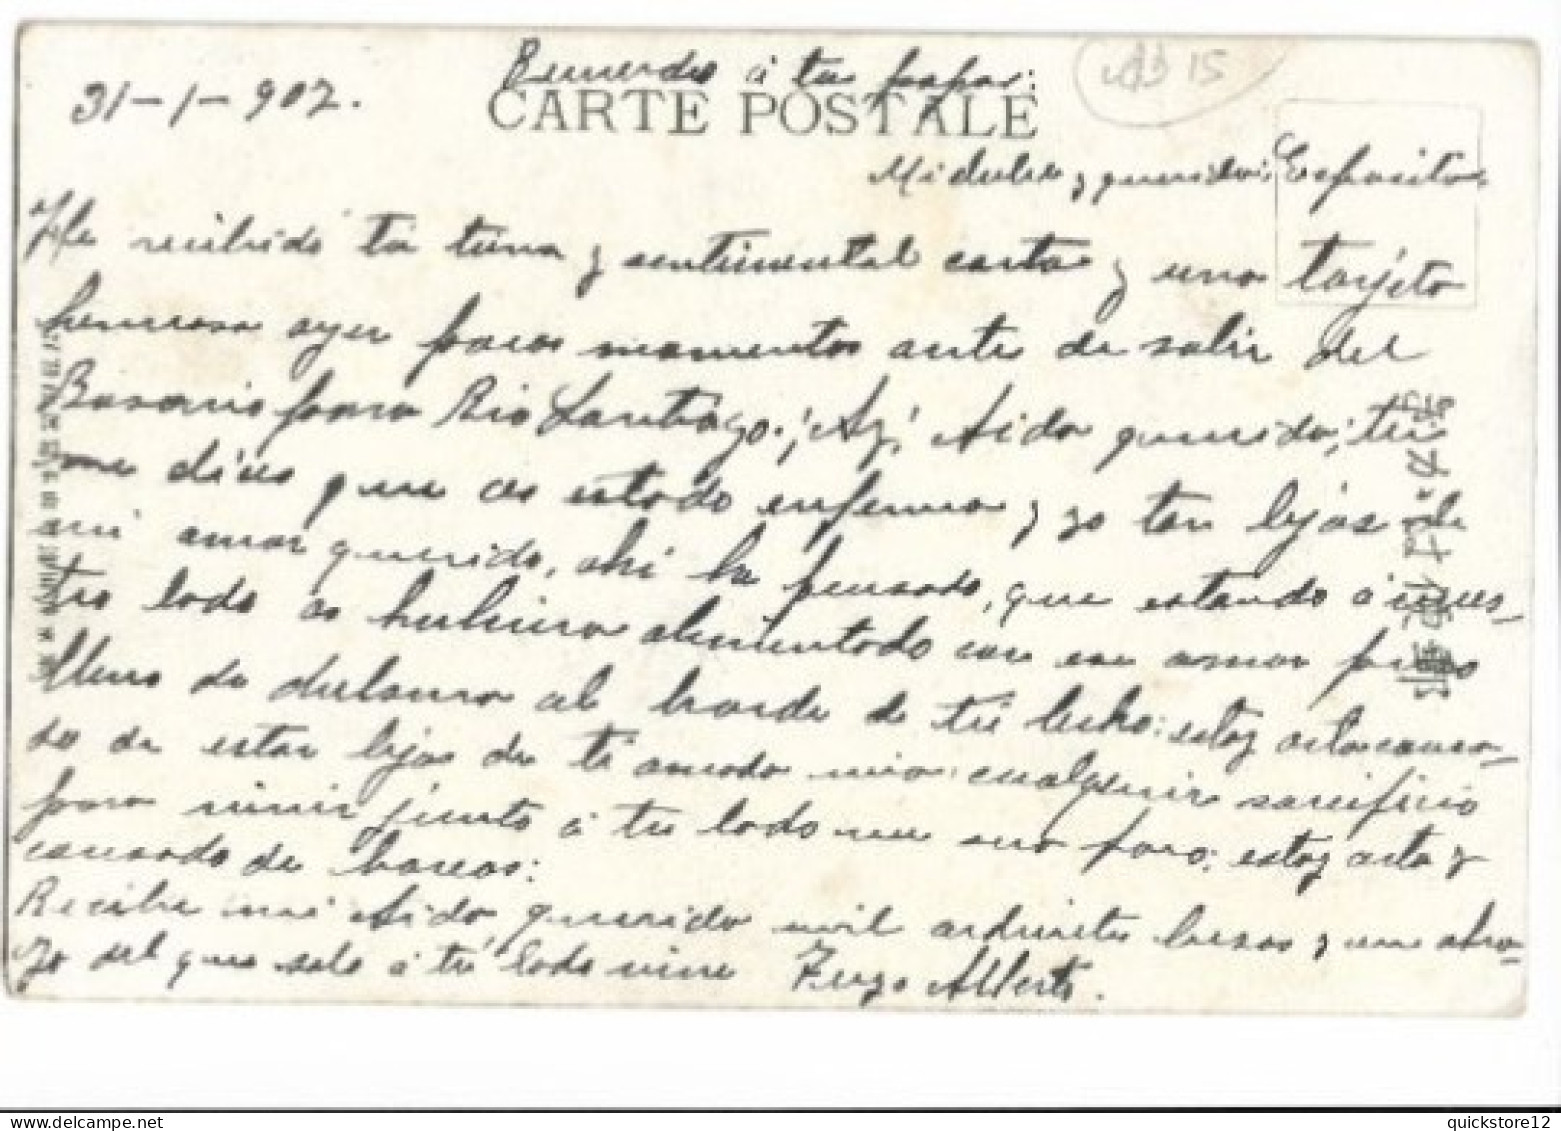 31-1-907.
Recuerdos a tu
CARTE POSTALE
15
Mi dulce y querida: Esposita
He recibido tu tierna y sentimental carta y una tarjeta
hermosa ayer pocos momentos ante de salir del
Rosario para Rio Santiago. ¡Ay! Aida querida; tú
me dices que as estado enferma y yo tan lejos de
mi amor querido, ahi he pensado, que estando á nues-
tro lado as hubiera alimentado con ese amor puro
lleno de dulzura al borde de tú lecho: estoy
do de estar lejos de ti amada mia: cualquier sacrificio
para vivir junto á tu lado me sera poco; estoy arta y
cansado de barcos:
Recibe mi Aida querida mil ardientes besos y un abra-
zo del que solo á tú lado vive Alberto.
quickstore12